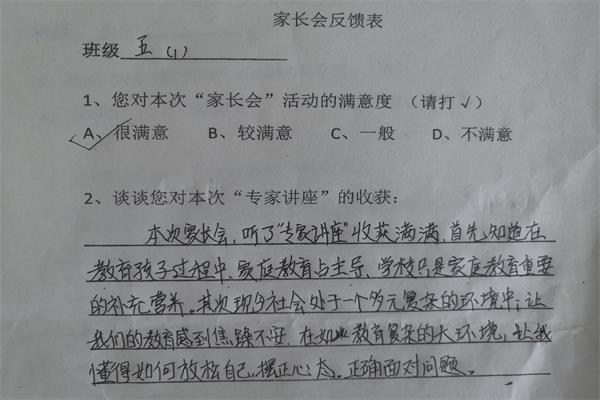 家长会反馈表
班级 五(1)
1、您对本次“家长会”活动的满意度（请打√）
A、很满意 B、较满意 C、一般 D、不满意
2、谈谈您对本次“专家讲座”的收获：
本次家长会，听了“专家讲座”收获满满，首先知道在
教育孩子过程中，家庭教育占主导，学校只是家庭教育重要
的补充营养。其次现今社会处于一个多元复杂的环境中，让
我们的教育感到焦躁不安，在如此教育复杂的大环境，让我
懂得如何放松自己，摆正心态，正确面对问题。